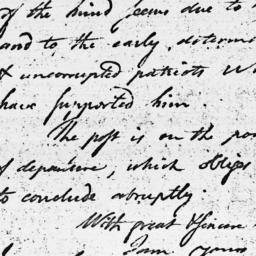 of the kind seems due to
and to the early, determi
& uncorrupted patriots w
have supported him.
The post is on the po
of departure, which obliges
to conclude abruptly.
With great & sincere
I am yours